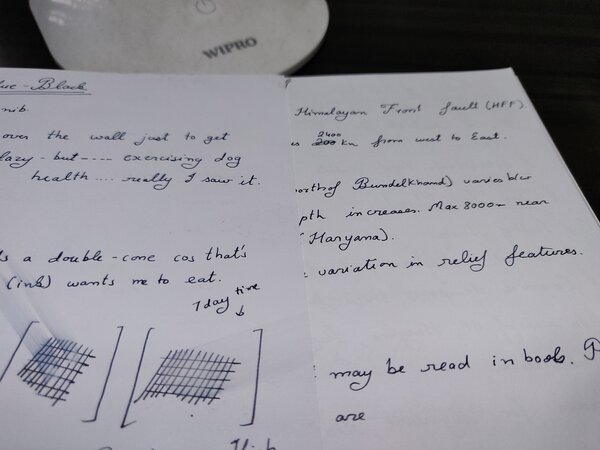 WIPRO
ue-Black
nib.
over the wall just to get
lazy - but ---- exercising dog
health .... really I saw it.
s a double-cone cos that's
(ink) wants me to eat.
7 day time
Himalayan Front fault (HFF)
2400
200 km from west to East.
orth of Bundelkhand) varies b/w
pth increases. Max 8000m near
(Haryana).
variation in relief features.
may be read in book. P
are